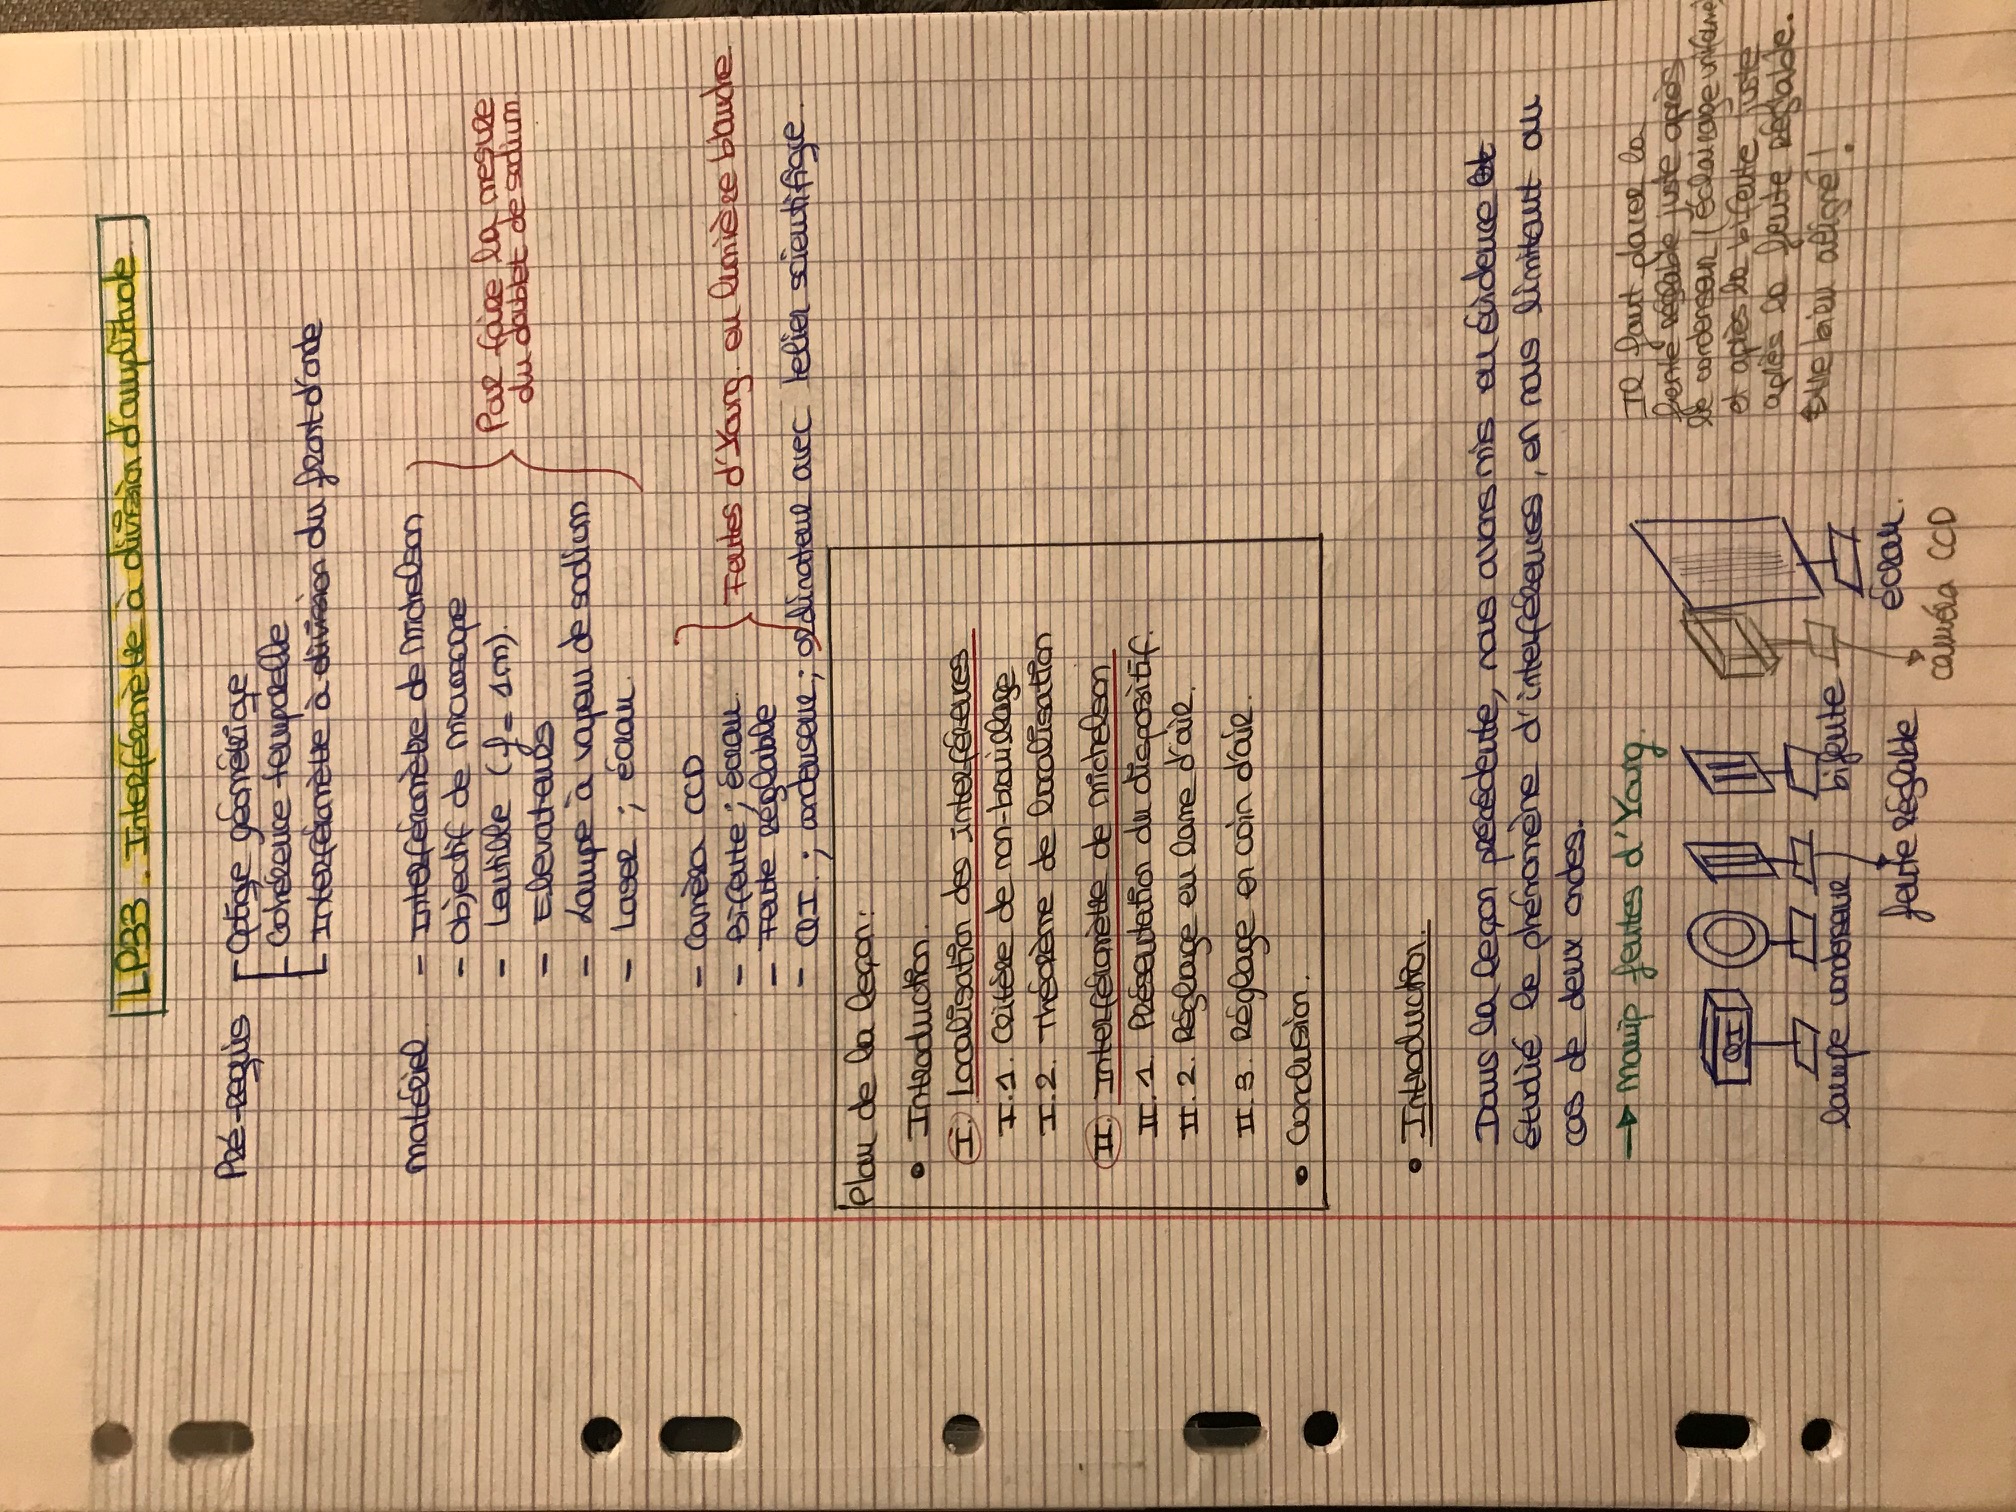 LP33. Interféromètre à division d'amplitude
Pré-requis - Optique géométrique
- Cohérence temporelle
- Interféromètre à division du front d'onde
Matériel - Interféromètre de Michelson
- Objectif de microscope
- Lentille (f = 1m).
- Elevateurs
- Lampe à vapeur de sodium
- Laser ; écran.
Pour faire la mesure
du doublet de sodium
- Caméra CCD
- Bifente ; écran.
- Fente réglable
- QI. ; condenseur ; ordinateur avec telier scientifique.
Fentes d'Young en lumière blanche
Plan de la leçon :
• Introduction.
I. Localisation des interférences
I.1. Critère de non-brouillage
I.2. Théorème de localisation
II. Interféromètre de Michelson
II.1. Présentation du dispositif.
II.2. Réglage en lame d'air.
II.3. Réglage en coin d'air.
• Conclusion.
• Introduction.
Dans la leçon précédente, nous avons mis en évidence et
étudié le phénomène d'interférences, en nous limitant au
cas de deux ondes.
→ Manip fentes d'Young.
Il faut placer la
fente réglable juste après
le condenseur (éclairage uniforme)
et après la bifente juste
après la fente réglable.
Etre bien aligné !
QI
lampe condenseur bifente
fente réglable
écran.
caméra CCD